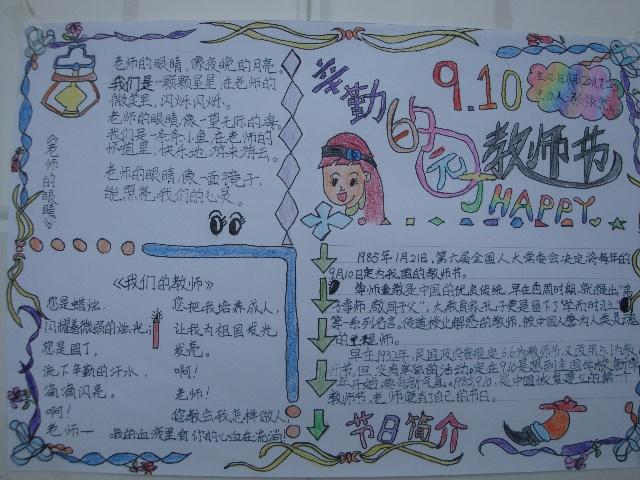 《老师的眼睛》
老师的眼睛,像夜晚的月亮。
我们是一颗颗星星,在老师的
微笑里,闪烁,闪烁。
老师的眼睛,像一望无际的海。
我们是一条条小鱼,在老师的
怀抱里,快乐地,游来游去。
老师的眼睛,像一面镜子,
能照亮我们的心灵。
9.10
辛勤的园丁
教师节
HAPPY
《我们的教师》
您是蜡烛,
闪耀着微弱的烛光;
您是园丁,
流下辛勤的汗水,
滴滴闪亮。
啊!
老师—
您把我培养成人,
让我为祖国发光
发亮。
啊!
老师!
您教会我怎样做人,
我的血液里有你的心血在流淌!
1985年1月21日,第六届全国人大常委会决定将每年的
9月10日定为我国的教师节。
尊师重教是中国的优良传统,早在西周时期,就提出“
事师,敬同于父”,大教育家孔子更是留下了“
等一系列名言,传道授业解惑的教师,被中国人誉为人类灵魂
的工程师。
早在1932年,民国政府曾规定6.6为教师节,
年开始,
教师节,老师便有了自己的节日。
节日简介